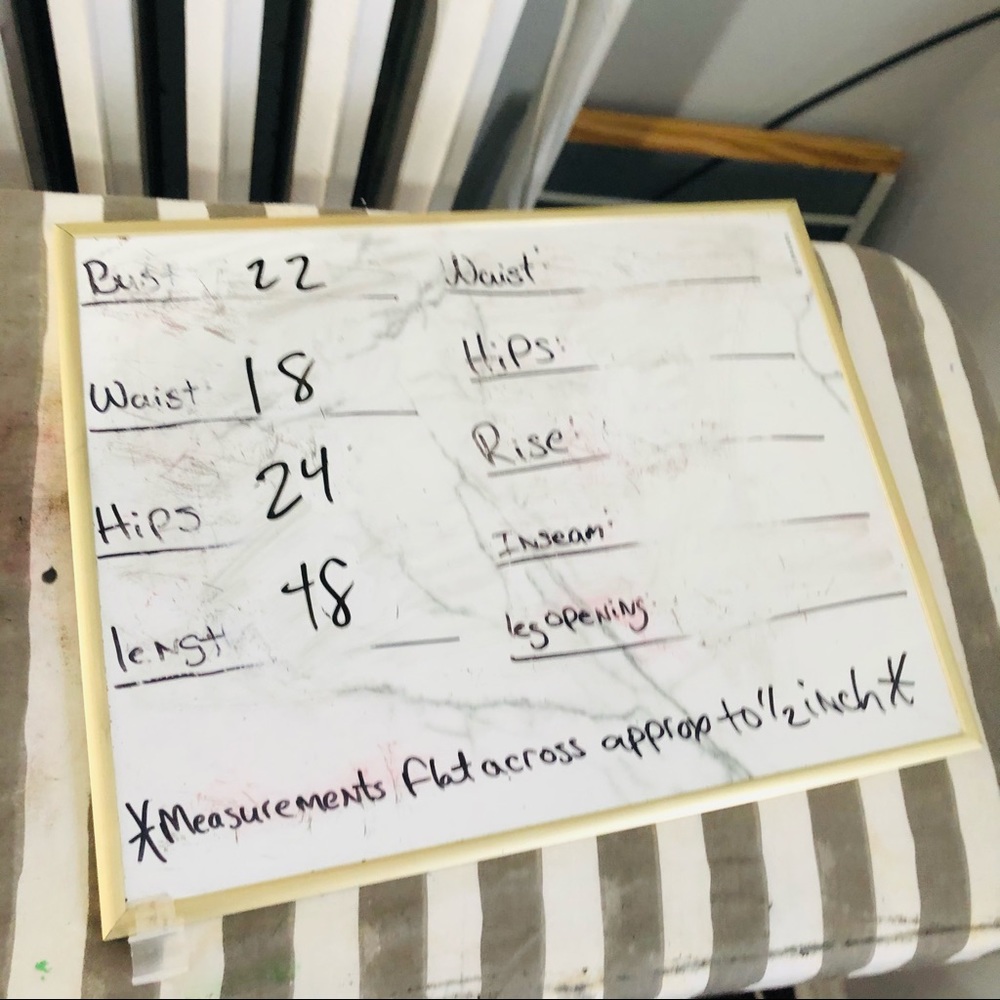 Bust 22
Waist: 18
Hips 24
lengt 48
Waist:
Hips:
Rise:
Inseam:
leg opening:
*Measurements flat across approp to 1/2 inch*